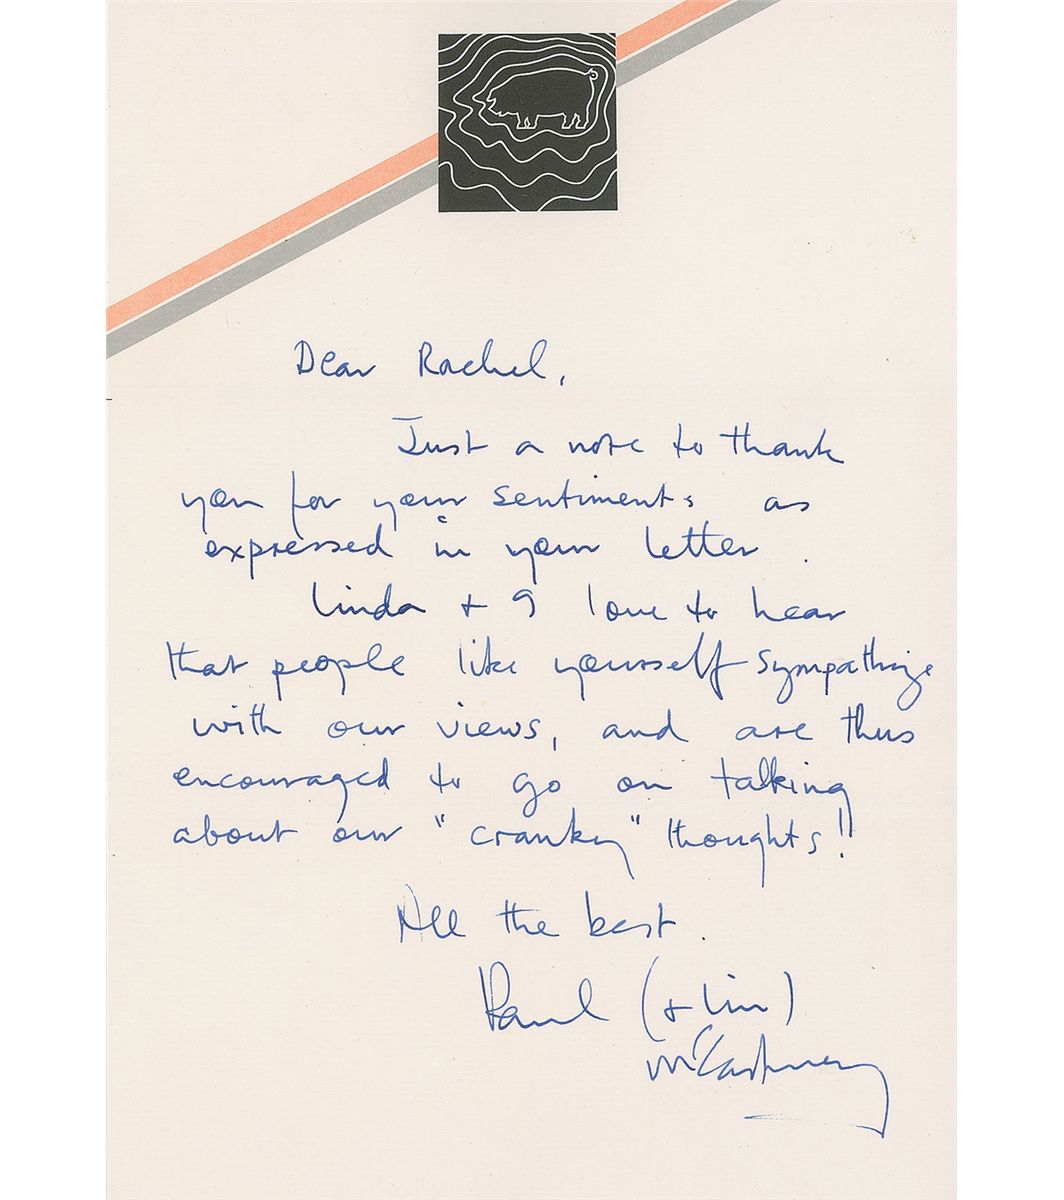 Dear Rachel,
Just a note to thank
you for your sentiments as
expressed in your letter.
Linda + I love to hear
that people like yourself sympathize
with our views, and are thus
encouraged to go on talking
about our "cranky" thoughts!!
All the best.
Paul (+ Lin)
McCartney